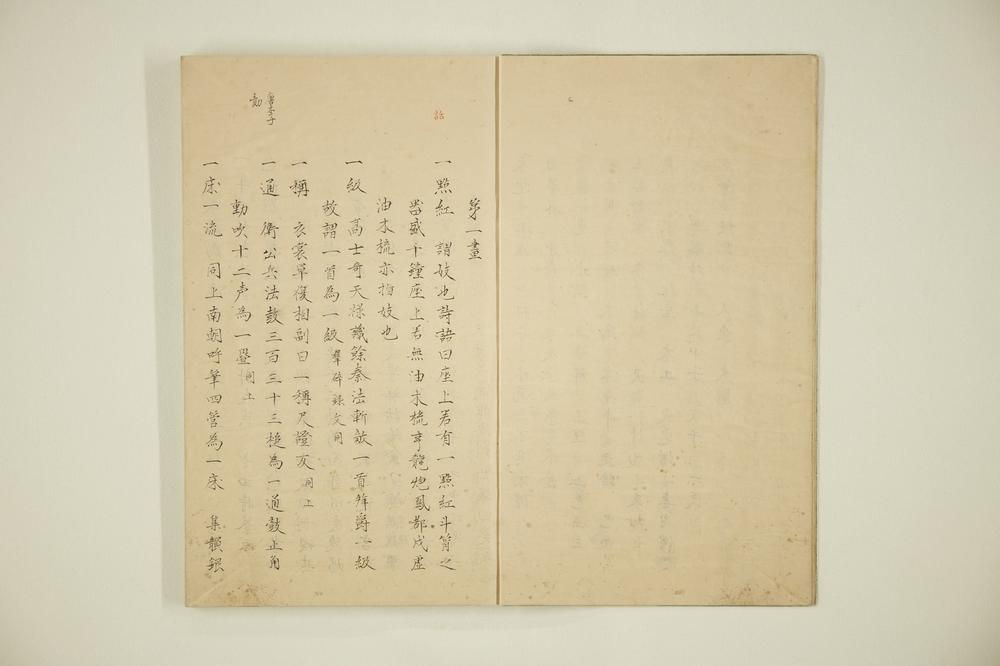 第一畫
一 點紅 謂妓也詩語曰座上若有一點紅斗筲之
器盛千鍾座上若無油木梳烹龍炮鳳都成虛
油木梳亦指妓也
一 級 高士奇天祿識餘秦法斬敵一首拜爵一級
故謂一首為一級 群碎錄文同
一 稱 衣裳單復相副曰一稱 同上
一 通 衛公兵法鼓三百三十三槌為一通鼓止角
動吹十二声為一疊 同上
一 床一流 同上南朝呼筆四管為一床